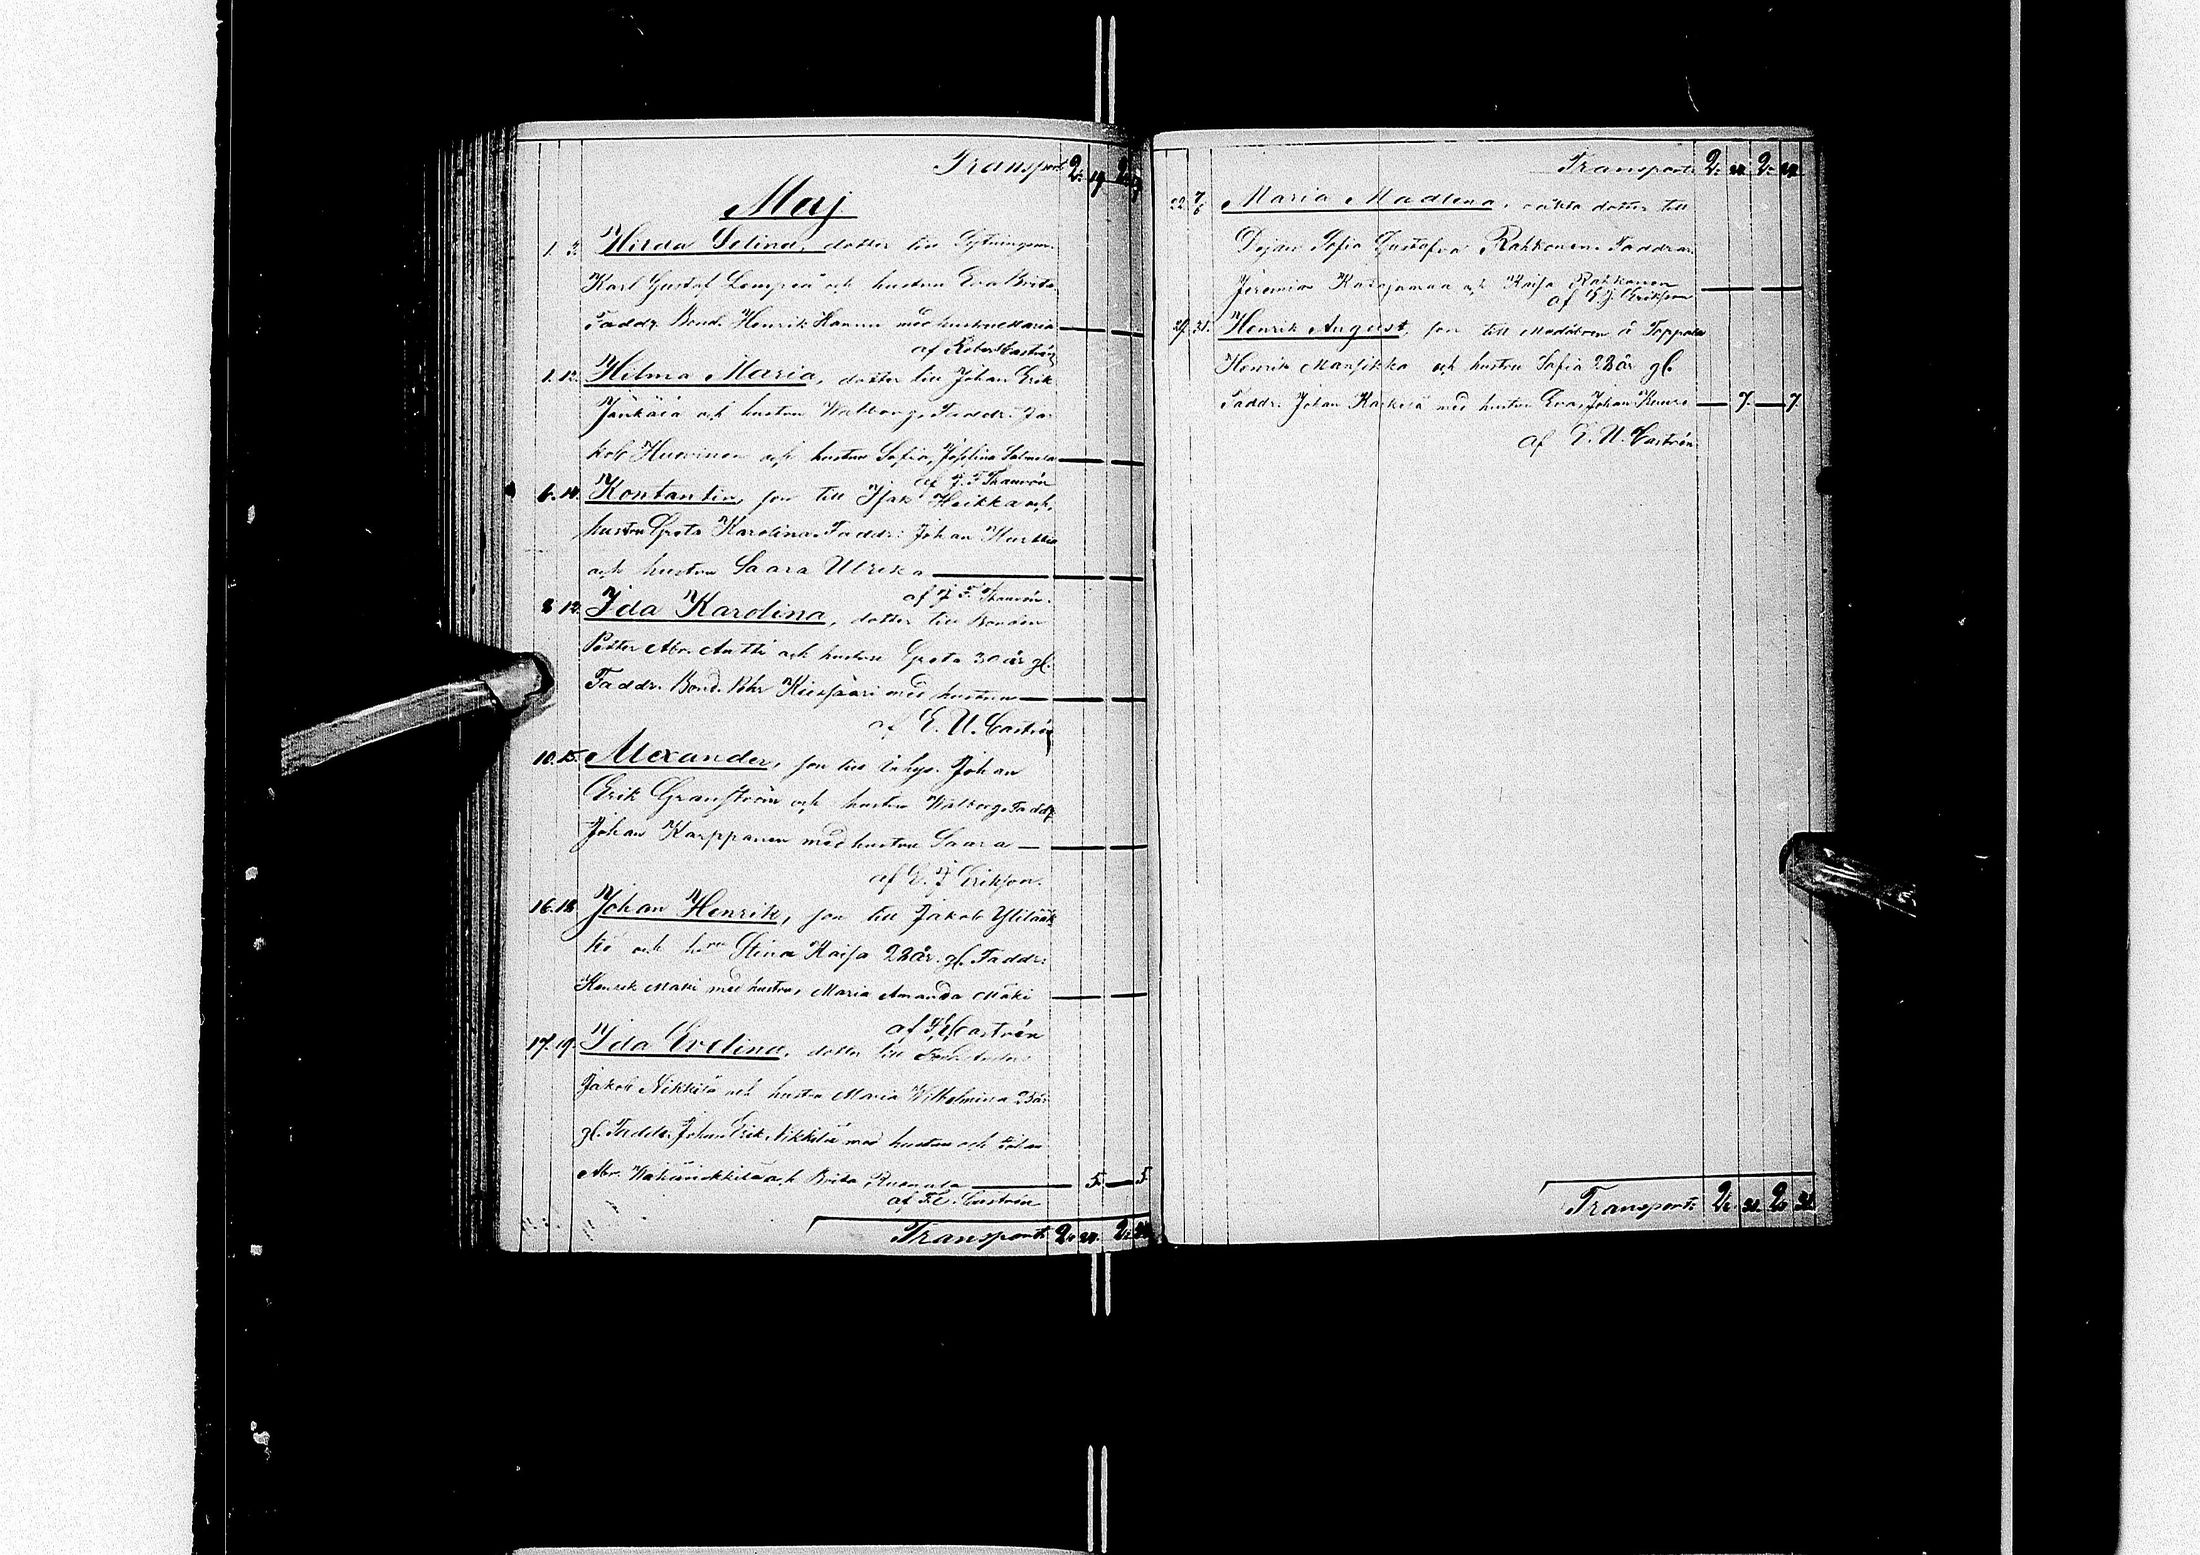 Transport 2: 19 2: 19
Maj
1. 3. Hilda Selina, dotter till
Karl Gustaf Lempeä och hustrun Eva Brita
Faddr. Bond. Henrik Hannu med hustru Maria — —
af Robert Castrén
1. 12. Hilma Maria, dotter till Johan Erik
Jänkälä och hustrun Walborg. Faddr. Ja-
kob Huovinen och hustrun Sofia, Josefina — —
af J. F. Thauvón
6. 14. Konstantin, son till Isak Heikka och
hustrun Greta Karolina. Faddr: Johan
och hustrun Saara Ulrika — —
af J. F. Thauvón
8. 12. Ida Karolina, dotter till Bonden
Petter Abr. Antti och hustrun Greta 30 år gl.
Faddr. Bond. Pehr med hustrun — —
af E. U. Castrén
10. 15. Alexander, son till Inhys. Johan
Erik Granström och hustrun Walborg. Faddr
Johan Karppanen med hustrun Saara — —
af E. J. Erikson.
16. 18. Johan Henrik, son till Jakob Ylilääk-
kö och h:run Stina Kaisa 28 år. gl. Faddr:
Henrik Mäki med hustru, Maria Amanda Mäki — —
af F. E. Castrén
17. 19. Ida Evelina, dotter till
Jakob Nikkilä och hustru Maria Wilhelmina 25 år
gl. Faddr. Johan Erik Nikkilä med hustrun och
Abr. och Brita — 5. — 5.
af F. E. Castrén
Transport 2: 24. 2: 24
Transport 2: 24. 2: 24.
22. 7/6 Maria Madlena, oäkta dotter till
Dejan Sofia Gustafva Rahkonen. Faddrar:
Jeremias Katajamaa och Kaisa Rahkonen — —
af E. J. Erikson
27. 31. Henrik August, son till Modören å Toppola
Henrik Mansikka och hustru Sofia 28 år gl.
Faddr. Johan med hustru Eva, Johan — 7. — 7.
af E. U. Castrén
Transport 2: 31. 2: 31.